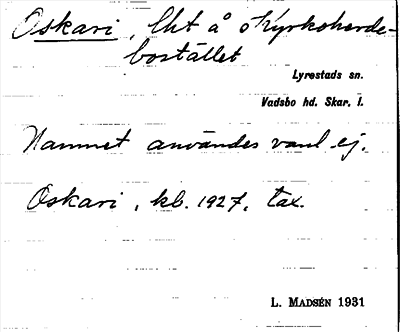 Oskari, lht å Kyrkoherde-
bostället
Lyrestads sn.
Vadsbo hd. Skar. l.
Namnet användes vanl. ej.
Oskari, kb. 1927, tax.
L. MADSÉN 1931